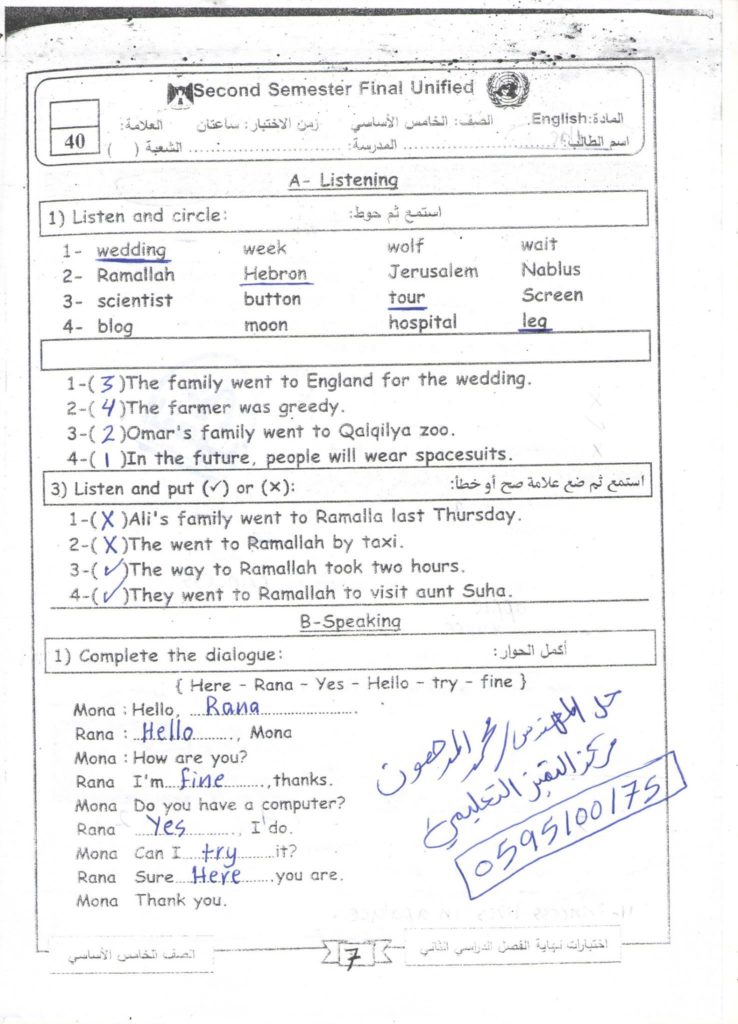 Second Semester Final Unified
المادة:English. الصف: الخامس الأساسي زمن الاختبار: ساعتان العلامة:
40
اسم الطالب: المدرسة: الشعبة ( )
A- Listening
1) Listen and circle: استمع ثم حوط:
1- wedding week wolf wait
2- Ramallah Hebron Jerusalem Nablus
3- scientist button tour Screen
4- blog moon hospital leg
1-( 3 )The family went to England for the wedding.
2-( 4 )The farmer was greedy.
3-( 2 )Omar's family went to Qalqilya zoo.
4-( 1 )In the future, people will wear spacesuits.
3) Listen and put (✓) or (×): استمع ثم ضع علامة صح أو خطأ:
1-( X )Ali's family went to Ramalla last Thursday.
2-( X )The went to Ramallah by taxi.
3-( ✓ )The way to Ramallah took two hours.
4-( ✓ )They went to Ramallah to visit aunt Suha.
B-Speaking
1) Complete the dialogue: أكمل الحوار:
{ Here - Rana - Yes - Hello - try - fine }
Mona : Hello, Rana
Rana : Hello, Mona
Mona : How are you?
Rana I'm fine, thanks.
Mona Do you have a computer?
Rana Yes, I do.
Mona Can I try it?
Rana Sure Here you are.
Mona Thank you.
حل المهندس/ محمد المدهون
مركز التميز التعليمي
0595100175
اختبارات نهاية الفصل الدراسي الثاني
7
الصف الخامس الأساسي